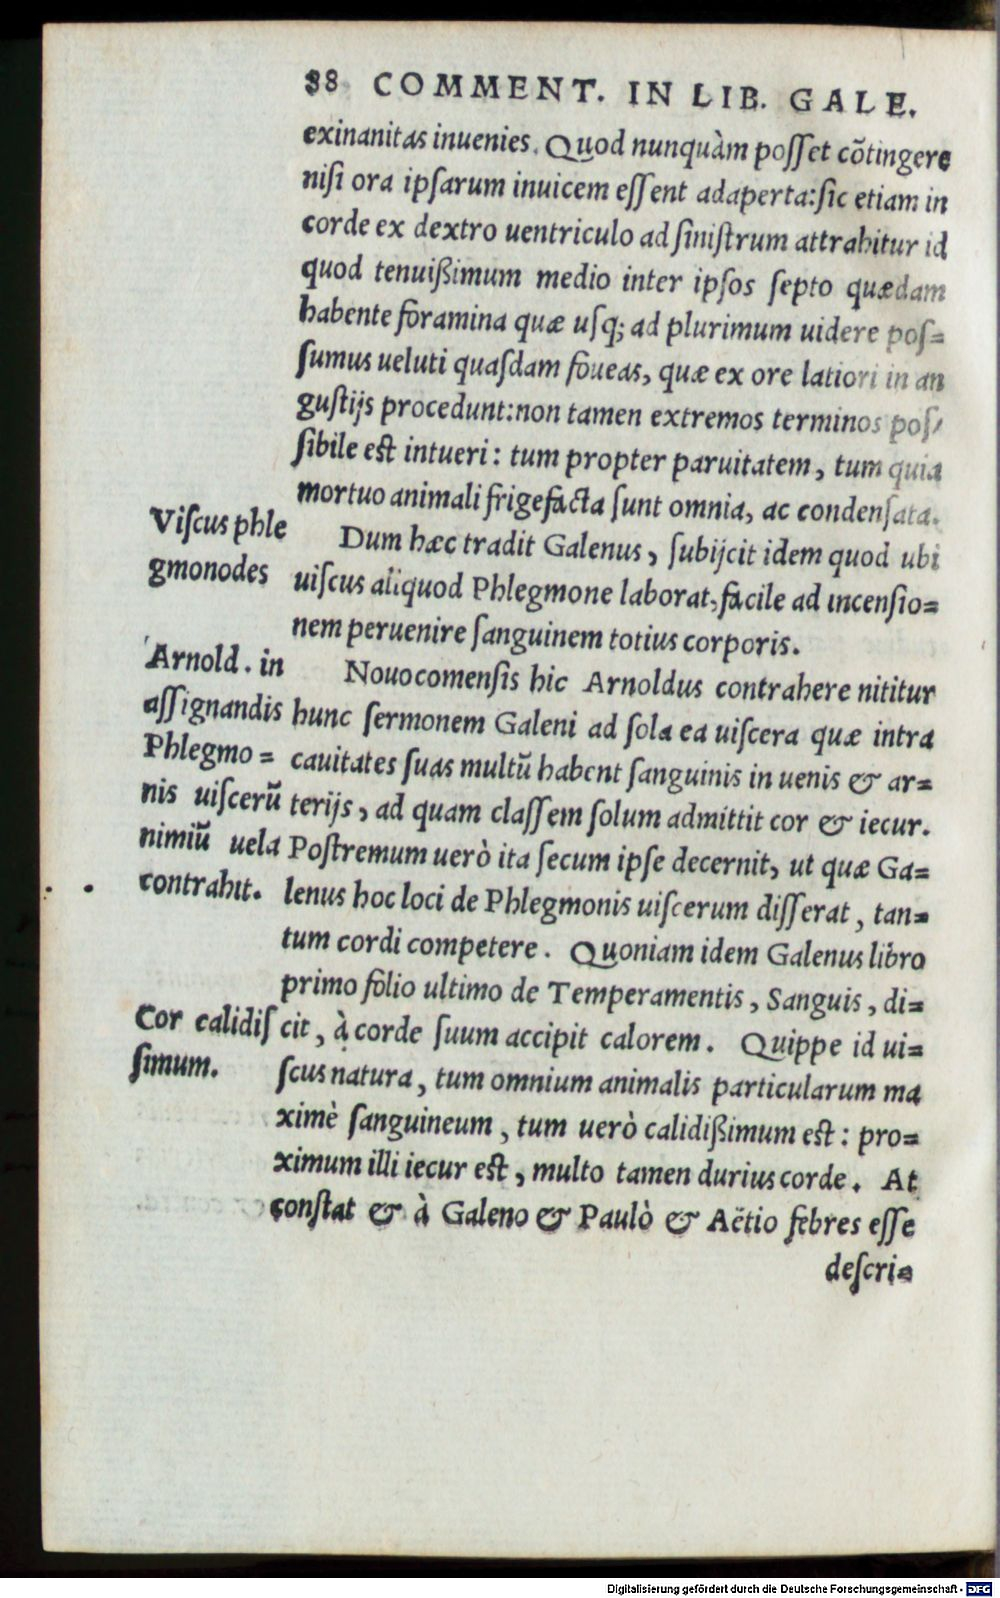 88 COMMENT. IN LIB. GALE.
exinanitas inuenies. Quod nunquàm posset cõtingere
nisi ora ipsarum inuicem essent adaperta: sic etiam in
corde ex dextro uentriculo ad sinistrum attrahitur id
quod tenuißimum medio inter ipsos septo quædam
habente foramina quæ usq; ad plurimum uidere pos=
sumus ueluti quasdam foueas, quæ ex ore latiori in an
gustijs procedunt: non tamen extremos terminos pos/
sibile est intueri: tum propter paruitatem, tum quia
mortuo animali frigefacta sunt omnia, ac condensata.
Viscus phle
gmonodes
Dum hæc tradit Galenus, subijcit idem quod ubi
uiscus aliquod Phlegmone laborat, facile ad incensio=
nem peruenire sanguinem totius corporis.
Arnold. in
assignandis
Phlegmo=
nis uiscerũ
nimiũ uela
contrahit.
Nouocomensis hic Arnoldus contrahere nititur
hunc sermonem Galeni ad sola ea uiscera quæ intra
cauitates suas multũ habent sanguinis in uenis & ar=
terijs, ad quam classem solum admittit cor & iecur.
Postremum uerò ita secum ipse decernit, ut quæ Ga=
lenus hoc loci de Phlegmonis uiscerum disserat, tan=
tum cordi competere. Quoniam idem Galenus libro
primo folio ultimo de Temperamentis, Sanguis, di=
Cor calidis
simum.
cit, à corde suum accipit calorem. Quippe id ui=
scus natura, tum omnium animalis particularum ma
ximè sanguineum, tum uerò calidißimum est: pro=
ximum illi iecur est, multo tamen durius corde. At
constat & à Galeno & Paulò & Aëtio febres esse
descri=
Digitalisierung gefördert durch die Deutsche Forschungsgemeinschaft - DFG